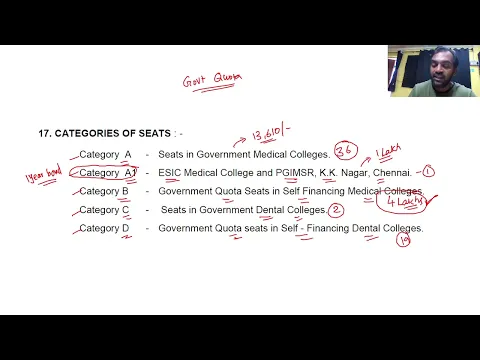 Govt Quota
13,610/-
17. CATEGORIES OF SEATS : -
Category A - Seats in Government Medical Colleges. 36
1 Lakh
1 year bond Category A1 - ESIC Medical College and PGIMSR, K.K. Nagar, Chennai. - 1
Category B - Government Quota Seats in Self Financing Medical Colleges.
4 Lakhs
Category C - Seats in Government Dental Colleges. 2
Category D - Government Quota seats in Self - Financing Dental Colleges.